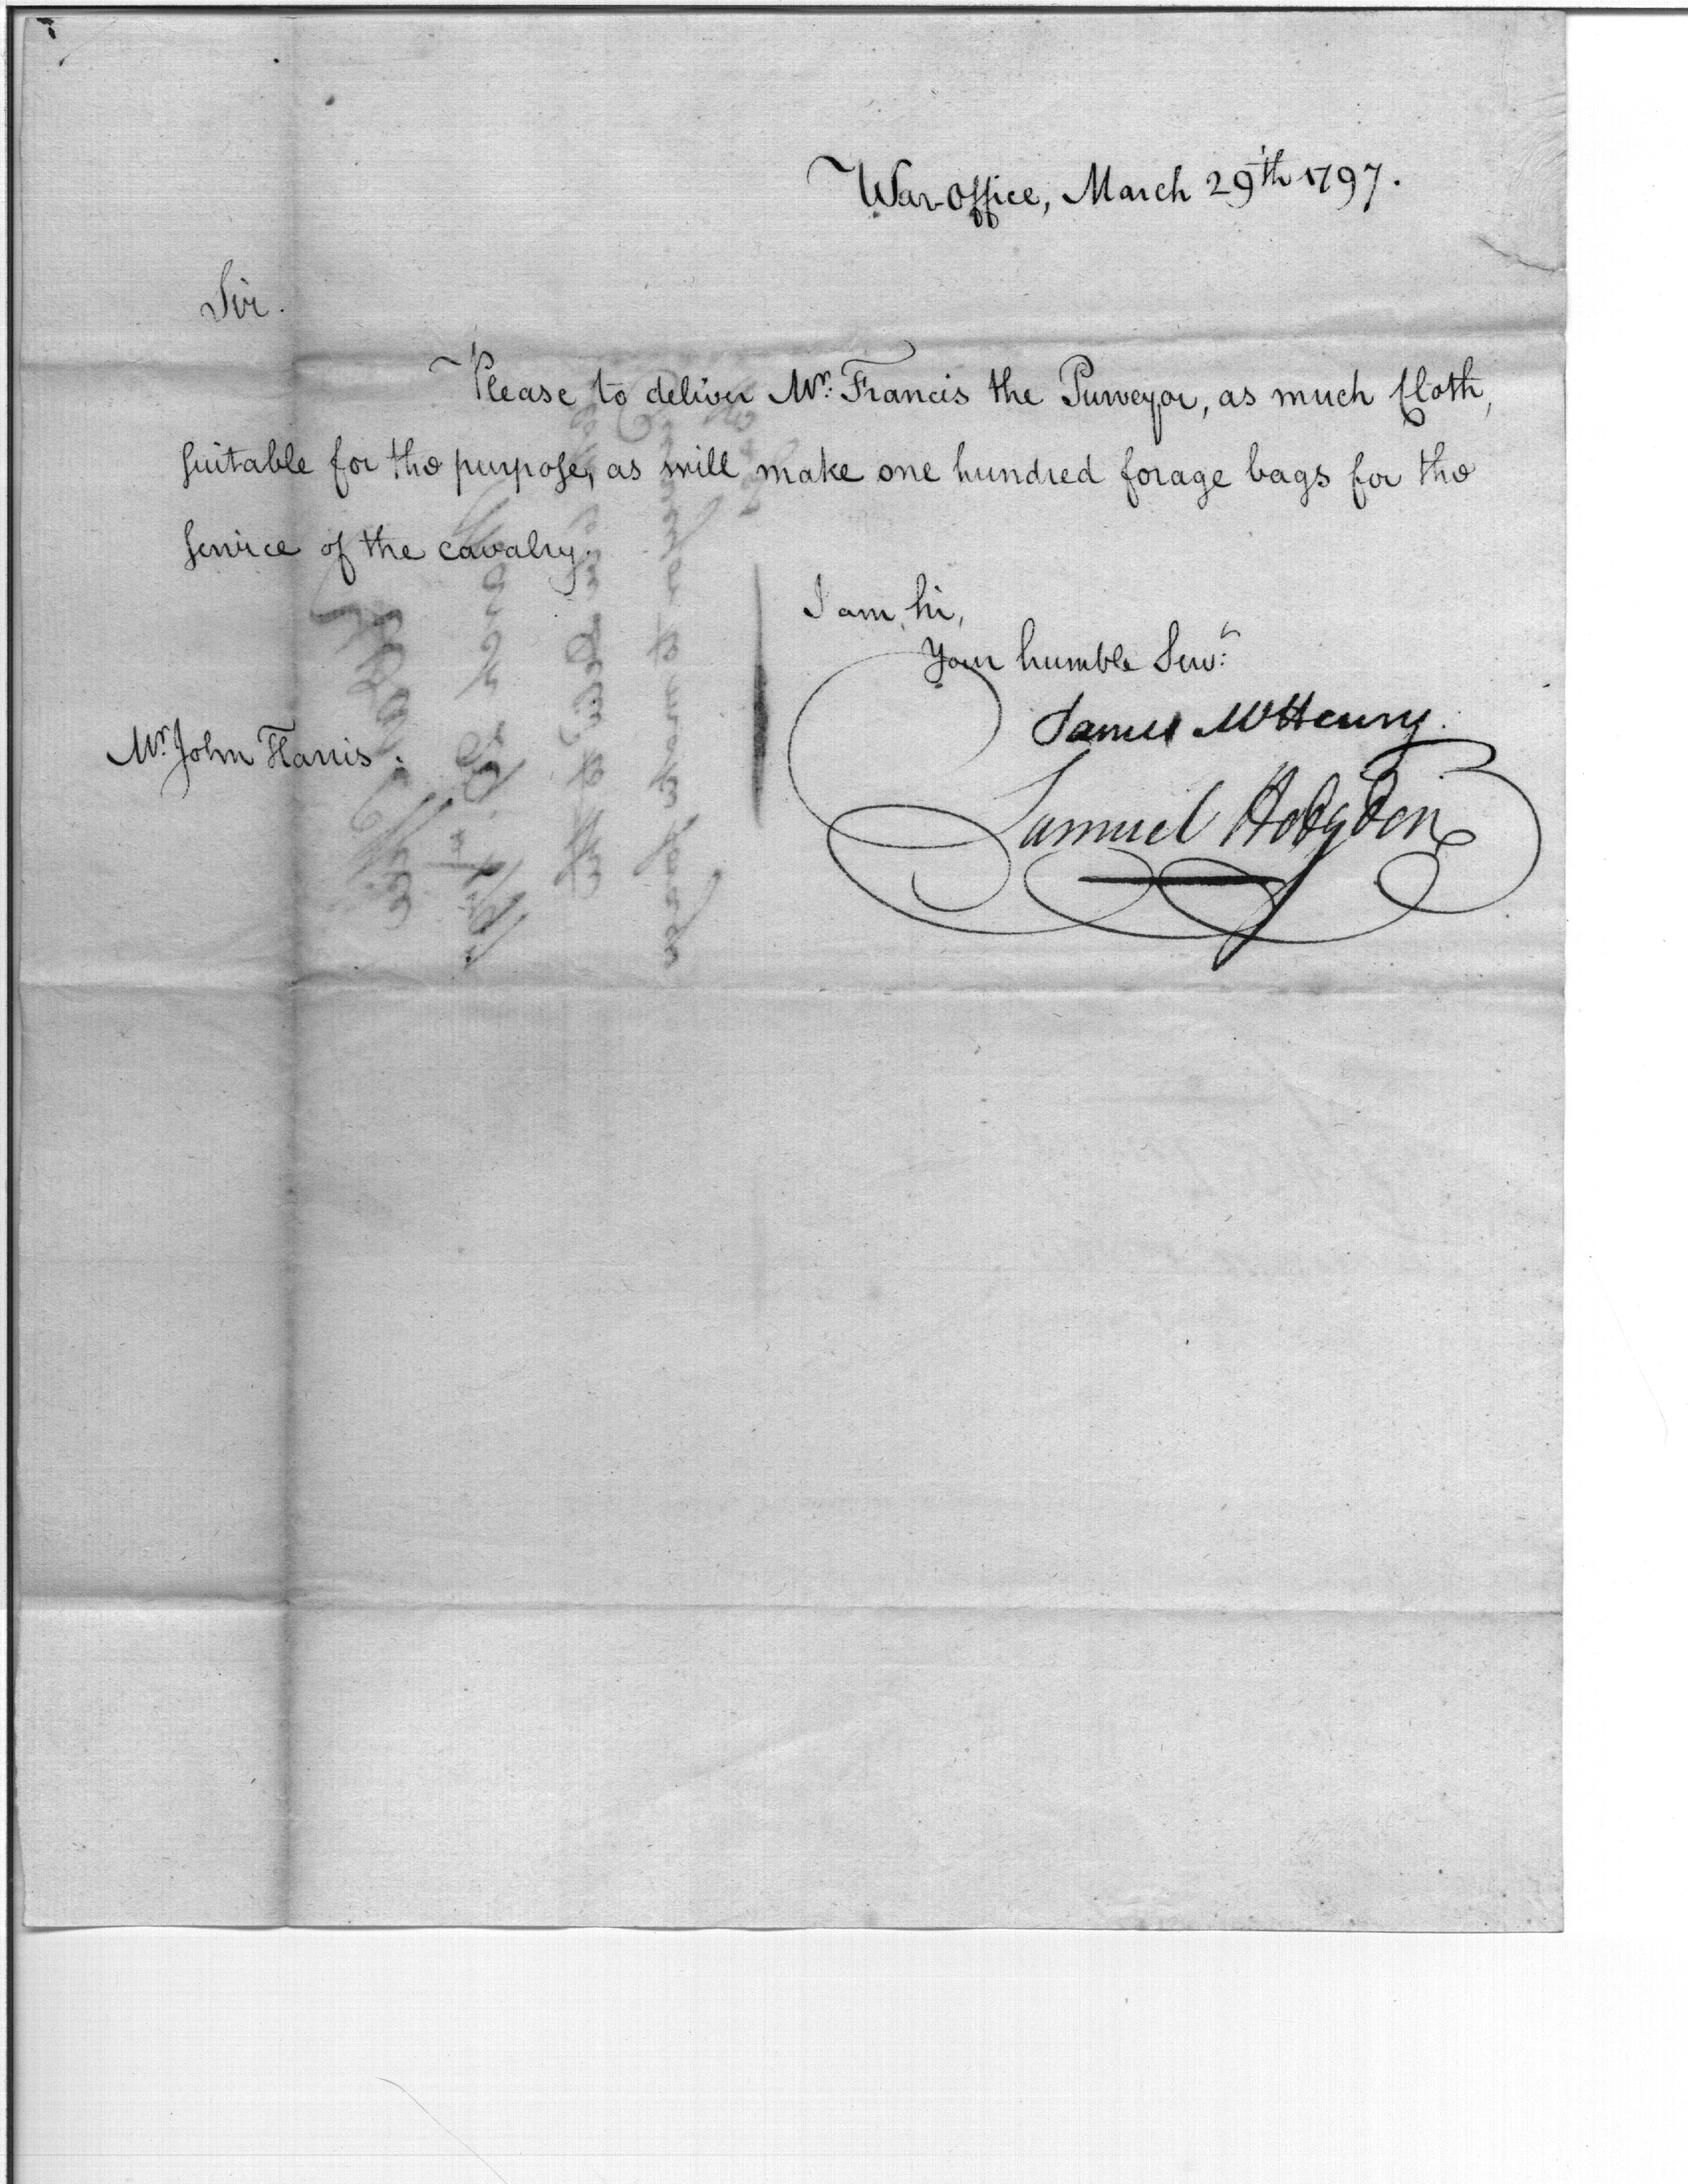 War-Office, March 29th 1797.
Sir.
Please to deliver Mr. Francis the Purveyor, as much Cloth,
suitable for the purpose, as will make one hundred forage bags for the
service of the cavalry.
I am, Sir,
Your humble Servt.
James McHenry.
Mr. John Harris.
Samuel Hodgdon